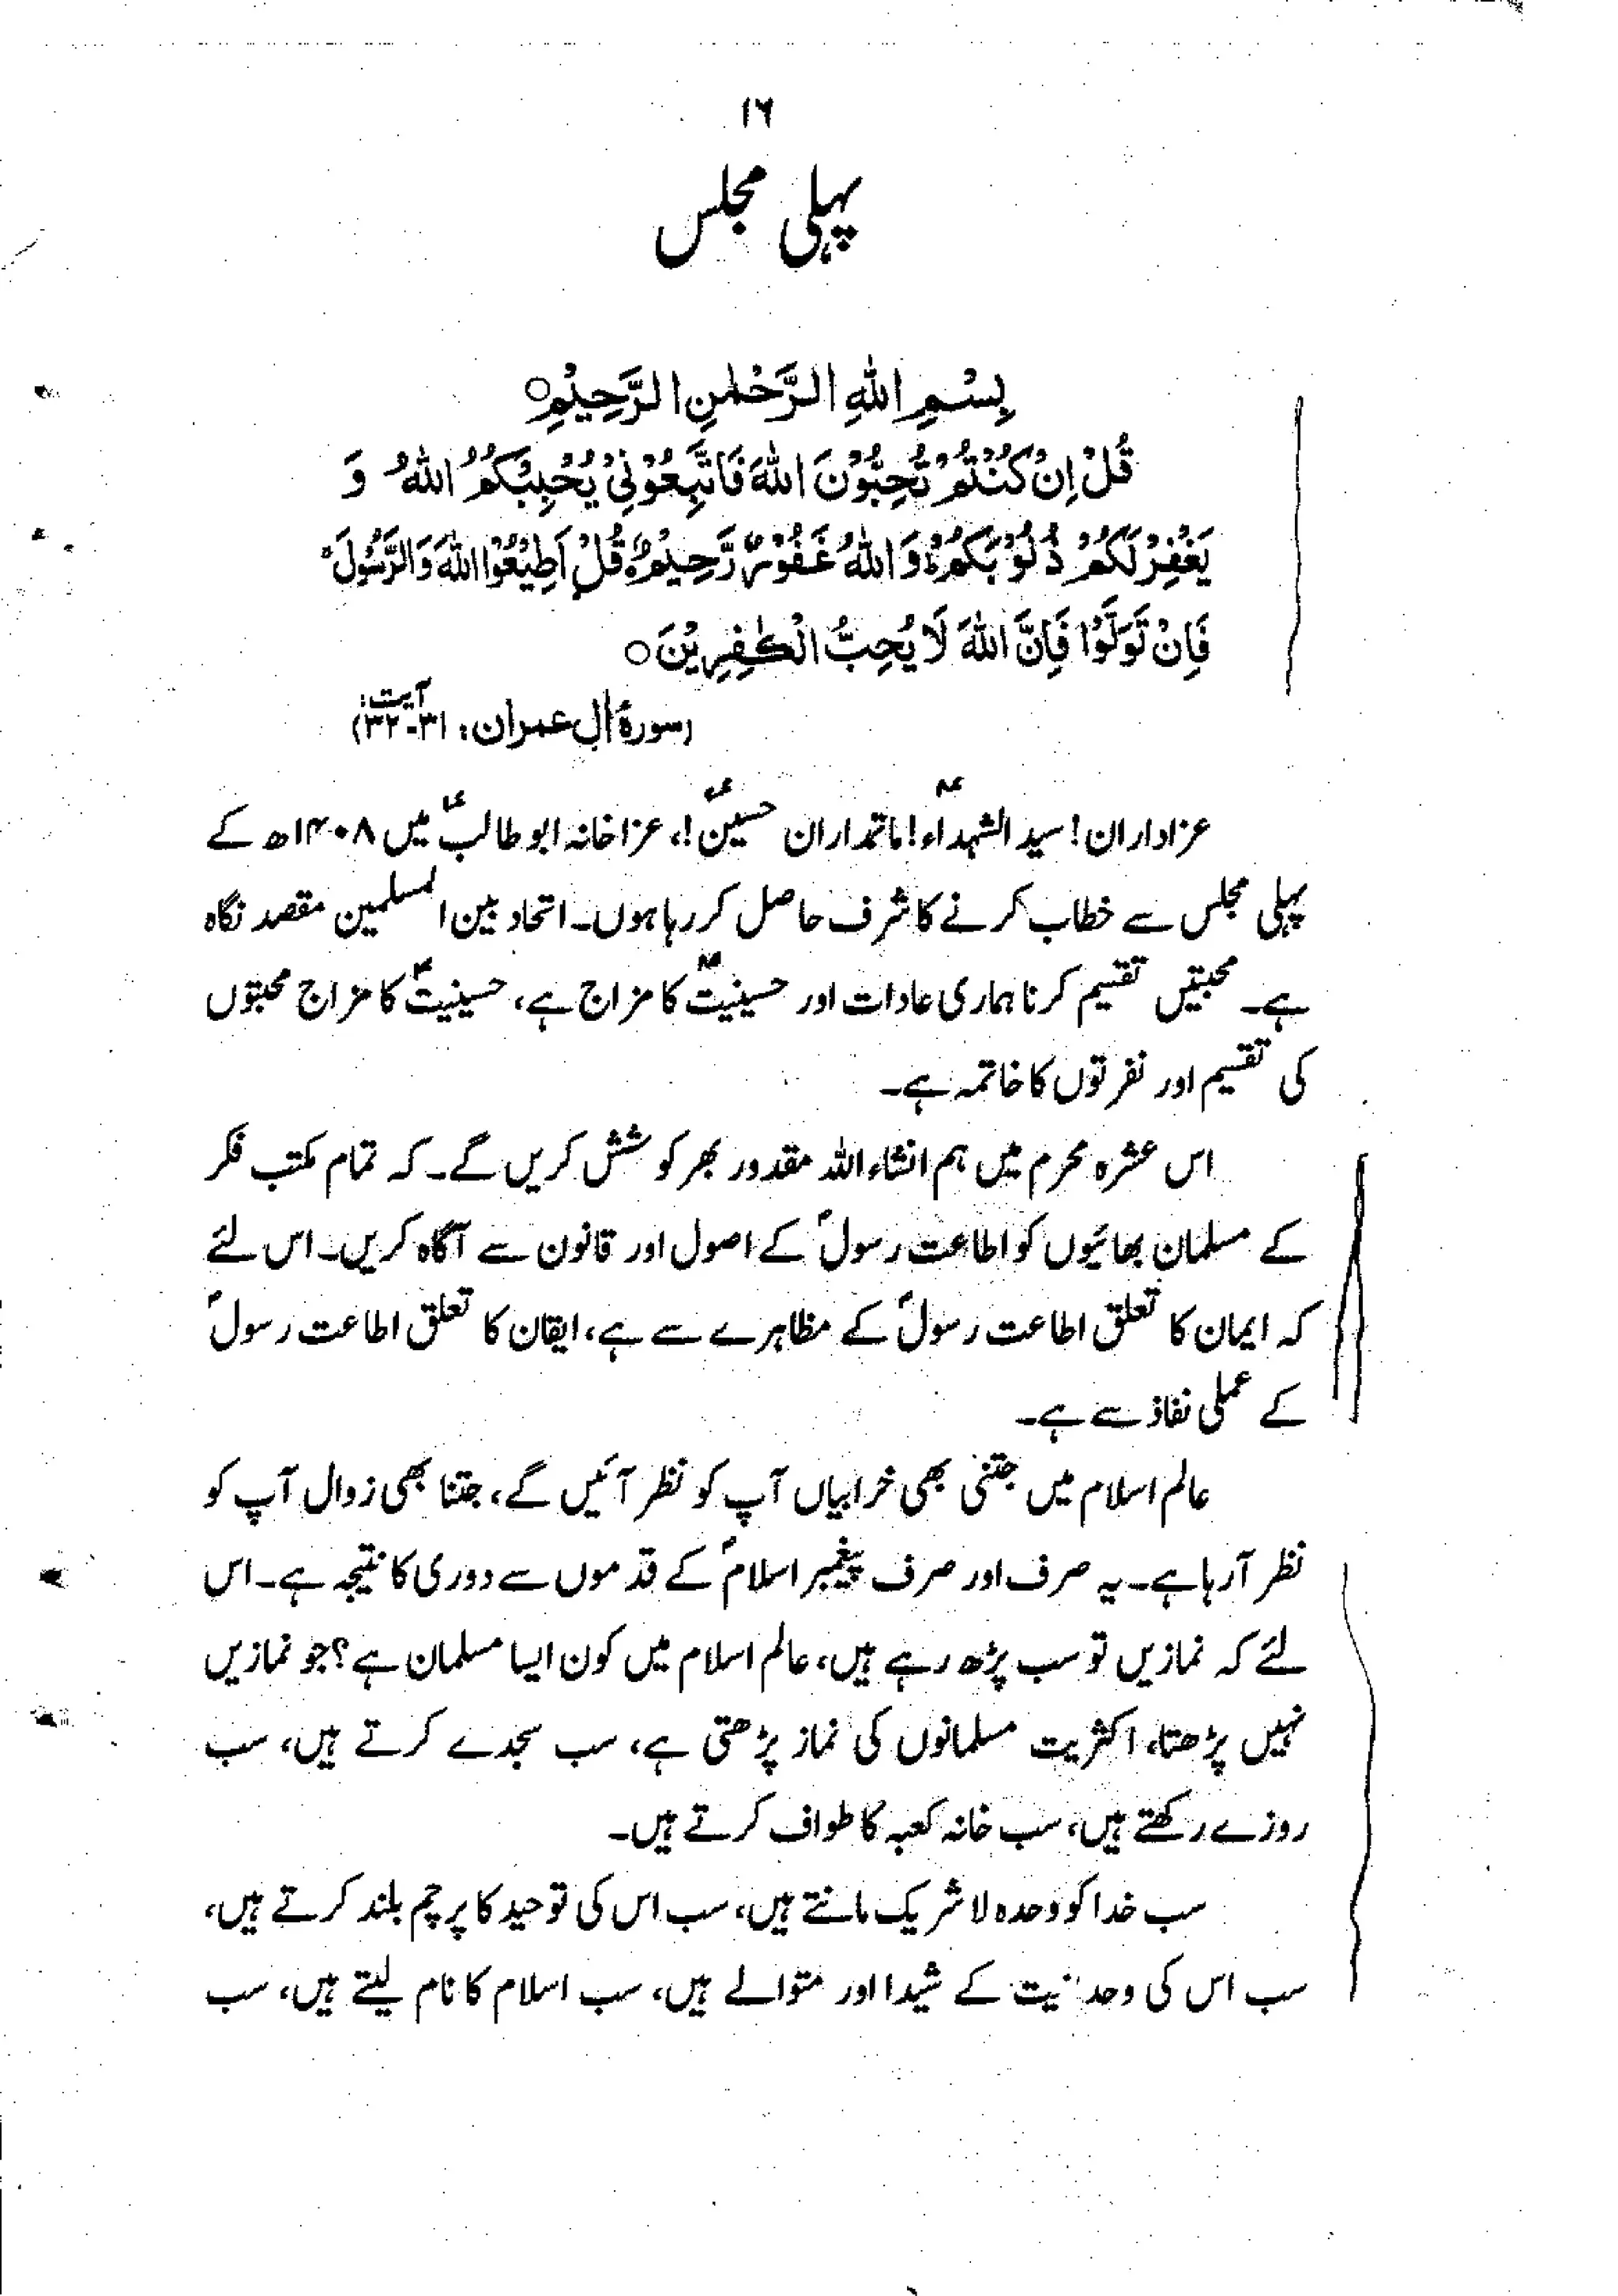 ۱۶
پہلی مجلس
بِسْمِ اللّٰهِ الرَّحْمٰنِ الرَّحِيْمِ○
قُلْ اِنْ كُنْتُمْ تُحِبُّوْنَ اللّٰهَ فَاتَّبِعُوْنِیْ يُحْبِبْكُمُ اللّٰهُ وَ
يَغْفِرْ لَكُمْ ذُنُوْبَكُمْ وَاللّٰهُ غَفُوْرٌ رَّحِيْمٌ قُلْ اَطِيْعُوا اللّٰهَ وَالرَّسُوْلَ
فَاِنْ تَوَلَّوْا فَاِنَّ اللّٰهَ لَا يُحِبُّ الْكٰفِرِيْنَ○
(سورۂ اٰل عمران: آیت: ۳۱-۳۲)
عزاداران! سید الشہداءؑ! ماتمداران حسینؑ!، عزاخانہ ابوطالبؑ میں ۱۴۰۸ھ کے
پہلی مجلس سے خطاب کرنے کا شرف حاصل کر رہا ہوں۔ اتحاد بین المسلمین مقصد نگاہ
ہے۔ محبتیں تقسیم کرنا ہماری عادات اور حسینیتؑ کا مزاج ہے، حسینیتؑ کا مزاج محبتوں
کی تقسیم اور نفرتوں کا خاتمہ ہے۔
اس عشرہ محرم میں ہم انشاء اللہ مقدور بھر کوشش کریں گے۔ کہ تمام مکتب فکر
کے مسلمان بھائیوں کو اطاعت رسولؐ کے اصول اور قانون سے آگاہ کریں۔ اس لئے
کہ ایمان کا تعلق اطاعت رسولؐ کے مظاہرے سے ہے، ایقان کا تعلق اطاعت رسولؐ
کے عملی نفاذ سے ہے۔
عالم اسلام میں جتنی بھی خرابیاں آپ کو نظر آئیں گے، جتنا بھی زوال آپ کو
نظر آرہا ہے۔ یہ صرف اور صرف پیغمبر اسلامؐ کے قدموں سے دوری کا نتیجہ ہے۔ اس
لئے کہ نمازیں تو سب پڑھ رہے ہیں، عالم اسلام میں کون ایسا مسلمان ہے؟ جو نمازیں
نہیں پڑھتا، اکثریت مسلمانوں کی نماز پڑھتی ہے، سب سجدے کرتے ہیں، سب
روزے رکھتے ہیں، سب خانہ کعبہ کا طواف کرتے ہیں۔
سب خدا کو وحدہ لاشریک مانتے ہیں، سب اس کی توحید کا پرچم بلند کرتے ہیں،
سب اس کی وحدنیت کے شیدا اور متوالے ہیں، سب اسلام کا نام لیتے ہیں، سب